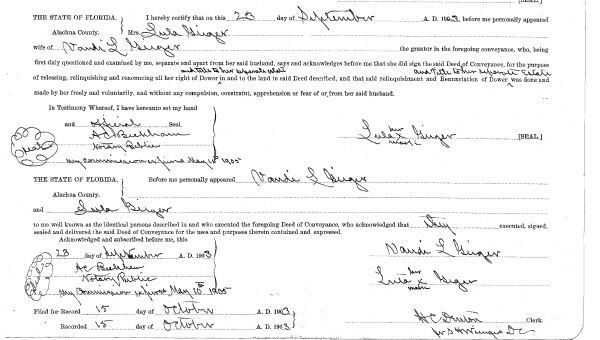 [SEAL]
THE STATE OF FLORIDA. I hereby certify that on this 23 day of September A. D. 1903, before me personally appeared
Alachua County. Mrs. Lula Geiger
wife of Vandi L Geiger the grantor in the foregoing conveyance, who, being
first duly questioned and examined by me, separate and apart from her said husband, says and acknowledges before me that she did sign the said Deed of Conveyance, for the purpose
and title to her separate estate and title to her separate estate
of releasing, relinquishing and renouncing all her right of Dower in and to the land in said Deed described, and that said relinquishment and Renunciation of Dower was done and
made by her freely and voluntarily, and without any compulsion, constraint, apprehension or fear of or from her said husband.
In Testimony Whereof, I have hereunto set my hand
and official Seal.
A C Beckham
Notary Public
Seal
my commission expires May 10th 1905
her
Lula x Geiger [SEAL]
mark
THE STATE OF FLORIDA. Before me personally appeared Vandi L Geiger
Alachua County.
and Lula Geiger
to me well known as the identical persons described in and who executed the foregoing Deed of Conveyance, who acknowledged that they executed, signed,
sealed and delivered the said Deed of Conveyance for the uses and purposes therein contained and expressed.
Acknowledged and subscribed before me, this
23 day of September A. D. 1903
A C Beckham
Notary Public
Seal
my commission expires May 10th 1905
Vandi L Geiger
her
Lula x Geiger
mark
Filed for Record 15 day of October A. D. 1903
H C Denton Clerk.
Recorded 15 day of October A. D. 1903
D C